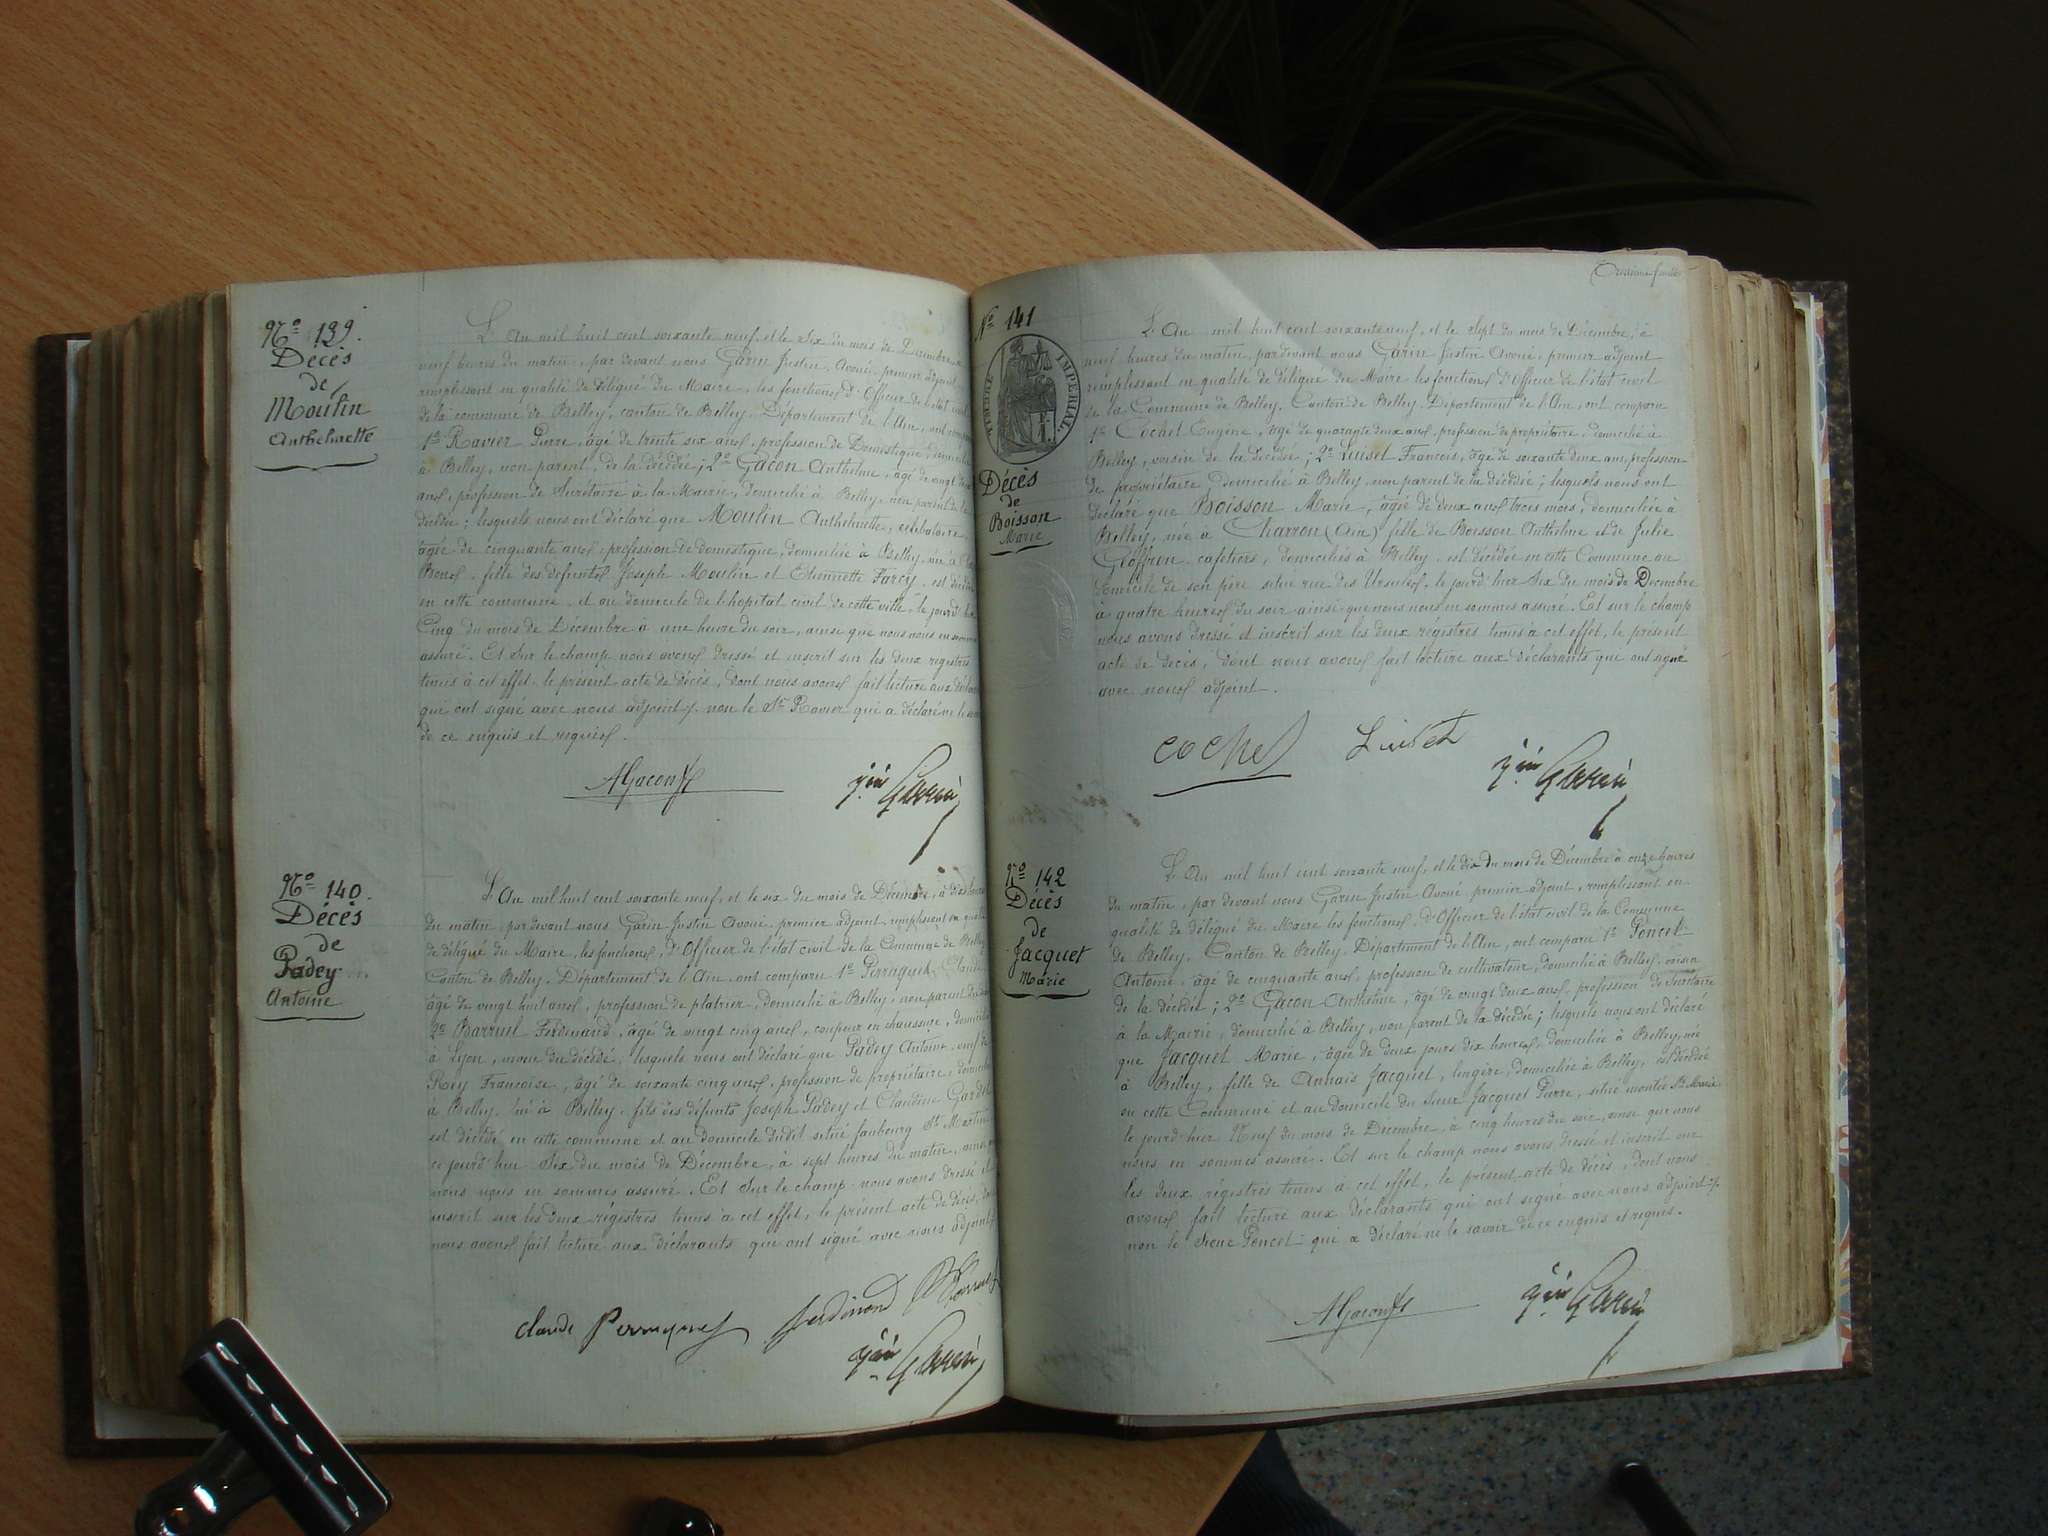 Nº 139.
Décès
de
Moulin
Anthelmette
L'An mil huit cent soixante neuf, et le Six du mois de Décembre à
neuf heures du matin, par devant nous Garin Justin, Avoué, premier adjoint
remplissant en qualité de délégué du Maire, les fonctions d'Officier de l'état civil
de la commune de Belley, canton de Belley, Département de l'Ain, ont comparu
1º Ravier Pierre, âgé de trente six ans, profession de Domestique, domicilié
à Belley, non parent de la décédée; 2º Gacon Anthelme, âgé de vingt deux
ans, profession de Secrétaire à la Mairie, domicilié à Belley, non parent de la
décédée; lesquels nous ont déclaré que Moulin Anthelmette, célibataire,
âgée de cinquante ans, profession de domestique, domiciliée à Belley, née à
Bons, fille des défunts Joseph Moulin et Etiennette Farcy, est décédée
en cette commune, et au domicile de l'hopital civil de cette ville, le jourd'hier
Cinq du mois de Décembre à une heure du soir, ainsi que nous nous en sommes
assuré. Et Sur le champ nous avons dressé et inscrit sur les deux registres
tenus à cet effet, le présent acte de décès, dont nous avons fait lecture aux déclarants
qui ont signé avec nous adjoint, non le Sr Ravier qui a déclaré ne le savoir
de ce enquis et requis.
AGacon
Jin Garin
Nº 140.
Décès
de
Padey
Antoine
L'An mil huit cent soixante neuf, et le six du mois de Décembre, à dix heures
du matin, par devant nous Garin Justin Avoué, premier adjoint, remplissant en qualité
de délégué du Maire, les fonctions d'Officier de l'état civil de la Commune de Belley
Canton de Belley, Département de l'Ain, ont comparu 1º Perruquet Claude
âgé de vingt huit ans, profession de platrier, domicilié à Belley, non parent du décédé
2º Barruel Ferdinand, âgé de vingt cinq ans, coupeur en chaussure, domicilié
à Lyon, neveu du décédé, lesquels nous ont déclaré que Padey Antoine, veuf de
Rey Françoise, âgé de soixante cinq ans, profession de propriétaire, domicilié
à Belley, né à Belley, fils des défunts Joseph Padey et Claudine
est décédé en cette commune et au domicile dudit situé faubourg St Martin
ce jourd'hui Six du mois de Décembre, à sept heures du matin, ainsi que
nous nous en sommes assuré. Et Sur le champ nous avons dressé et
inscrit sur les deux régistres tenus à cet effet, le présent acte de décès, dont
nous avons fait lecture aux déclarants qui ont signé avec nous adjoint
Claude Perruquet
ferdinand Barruel
Jin Garin
Nº 141
TIMBRE IMPERIAL
Décès
de
Boisson
Marie
L'An mil huit cent soixante neuf, et le Sept du mois de Décembre, à
neuf heures du matin, par devant nous Garin Justin Avoué, premier adjoint
remplissant en qualité de délégué du Maire les fonctions d'Officier de l'état civil
de la Commune de Belley, Canton de Belley, Département de l'Ain, ont comparu
1º Cochet Eugène, âgé de quarante deux ans, profession de propriétaire, domicilié à
Belley, voisin de la décédée; 2º François, âgé de soixante deux ans, profession
de propriétaire domicilié à Belley, non parent de la décédée; lesquels nous ont
déclaré que Boisson Marie, âgée de deux ans trois mois, domiciliée à
Belley, née à (Ain) fille de Boisson Anthelme et de Julie
Geoffron, cafetiers, domiciliés à Belley, est décédée en cette Commune au
domicile de son père situé rue des Ursules, le jourd'hier Six du mois de Décembre
à quatre heures du soir, ainsi que nous nous en sommes assuré. Et sur le champ
nous avons dressé et inscrit sur les deux régistres tenus à cet effet, le présent
acte de décès, dont nous avons fait lecture aux déclarants qui ont signé
avec nous adjoint.
Cochet
Jin Garin
Nº 142
Décès
de
Jacquet
Marie
L'An mil huit cent soixante neuf, et le dix du mois de Décembre à onze heures
du matin, par devant nous Garin Justin Avoué, premier adjoint, remplissant en
qualité de délégué du Maire les fonctions d'Officier de l'état civil de la Commune
de Belley, Canton de Belley, Département de l'Ain, ont comparu 1º Poncet
Antoine, âgé de cinquante ans, profession de cultivateur, domicilié à Belley, voisin
de la décédée; 2º Gacon Anthelme, âgé de vingt deux ans, profession de Secrétaire
à la Mairie, domicilié à Belley, non parent de la décédée; lesquels nous ont déclaré
que Jacquet Marie, âgée de deux jours dix heures, domiciliée à Belley, née
à Belley, fille de Annais Jacquet, lingère, domiciliée à Belley, est décédée
en cette Commune et au domicile du Sieur Jacquet Pierre, situé montée Ste Marie
le jourd'hier Neuf du mois de Décembre, à cinq heures du soir, ainsi que nous
nous en sommes assuré. Et sur le champ nous avons dressé et inscrit sur
les deux régistrés tenus à cet effet, le présent acte de décès, dont nous
avons fait lecture aux déclarants qui ont signé avec nous adjoint
non le Sieur Poncet qui a déclaré ne le savoir de ce enquis et requis.
AGacon
Jin Garin